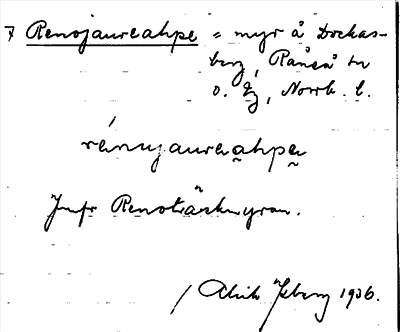 Renojaureahpe = myr å Dockas-
berg, Råneå sn
o. lg, Norrb. l.
rénujaureahpe
Jmfr Renoträskmyran.
/ Alrik Isberg 1936.